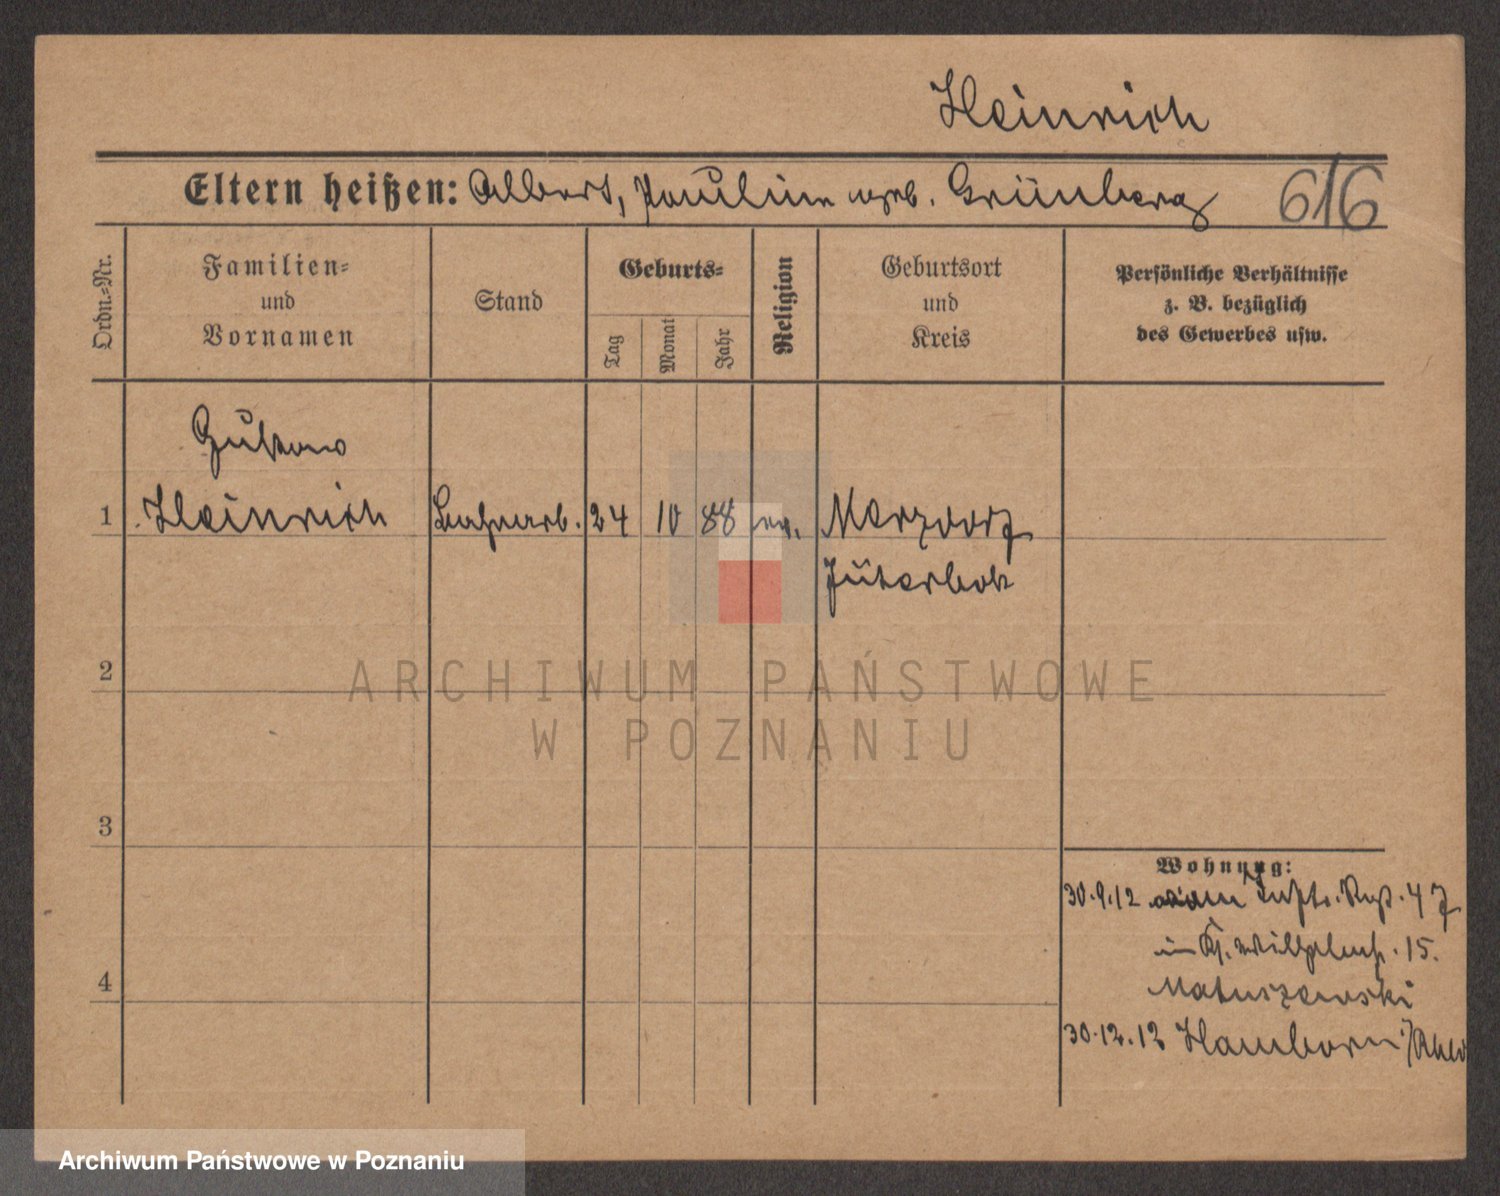 Heinrich
Eltern heißen: Albert, Pauline geb. Grünberg 616
Ordn.-Nr.
Familien-
und
Vornamen
Stand
Geburts-
Tag
Monat
Jahr
Religion
Geburtsort
und
Kreis
Persönliche Verhältnisse
z. B. bezüglich
des Gewerbes usw.
Gustav
1 Heinrich Bahnarb. 24 10 88 ev. Merzdorf
Jüterbok
2
3
4
Wohnung:
30.9.12 Inftr. Rgt. 47
in Kg. Wilhelmstr. 15.
Matuszewski
30.12.12 Hamborn
ARCHIWUM PAŃSTWOWE
W POZNANIU
Archiwum Państwowe w Poznaniu